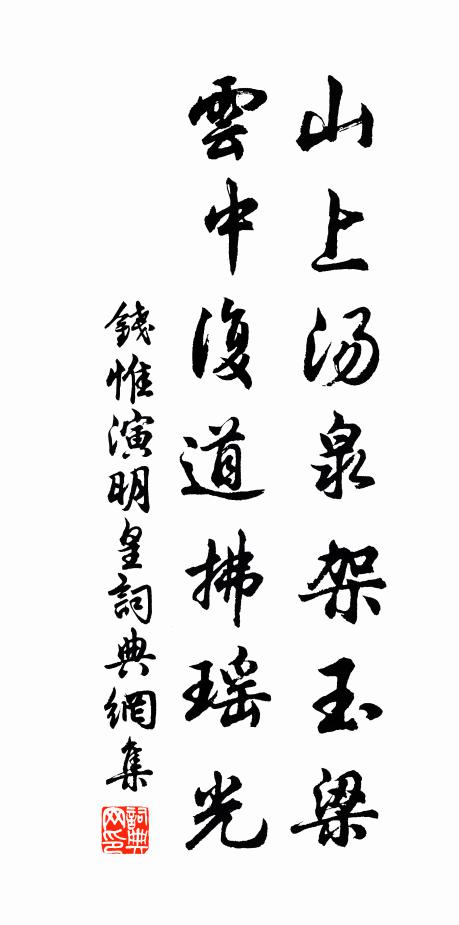 山上汤泉架玉梁
雲中復道拂瑶光
錢惟演明皇詞典網集
詞典网印